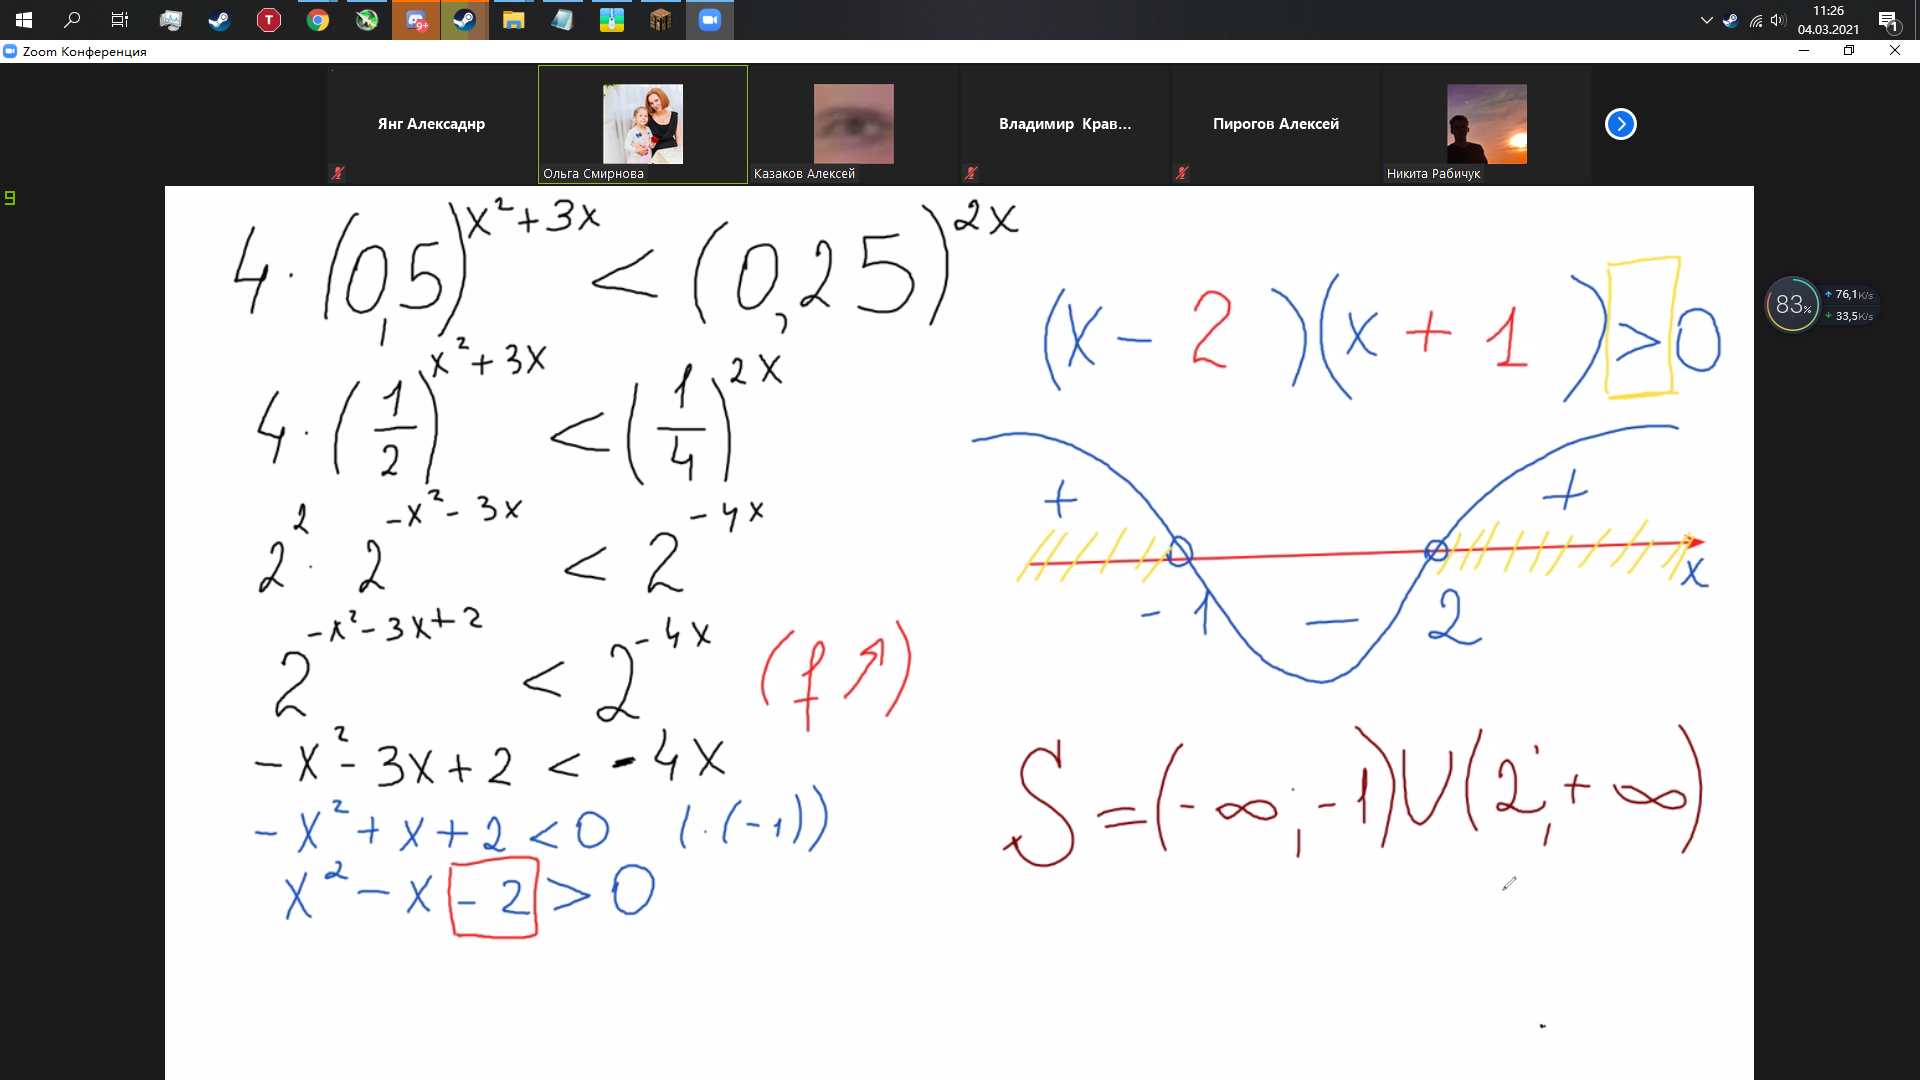 11:26
04.03.2021
1
T
9+
Zoom Конференция
9
Янг Алексаднр
Ольга Смирнова
Казаков Алексей
Владимир Крав...
Пирогов Алексей
Никита Рабичук
83%
76,1K/s
33,5K/s
4 · (0,5)^{x²+3x} < (0,25)^{2x}
4 · (1/2)^{x²+3x} < (1/4)^{2x}
2² · 2^{-x²-3x} < 2^{-4x}
2^{-x²-3x+2} < 2^{-4x} (f↗)
-x²-3x+2 < -4x
-x²+x+2<0 (·(-1))
x²-x-2>0
(x-2)(x+1)>0
+ +
x
-1 — 2
S=(-∞;-1)∪(2;+∞)